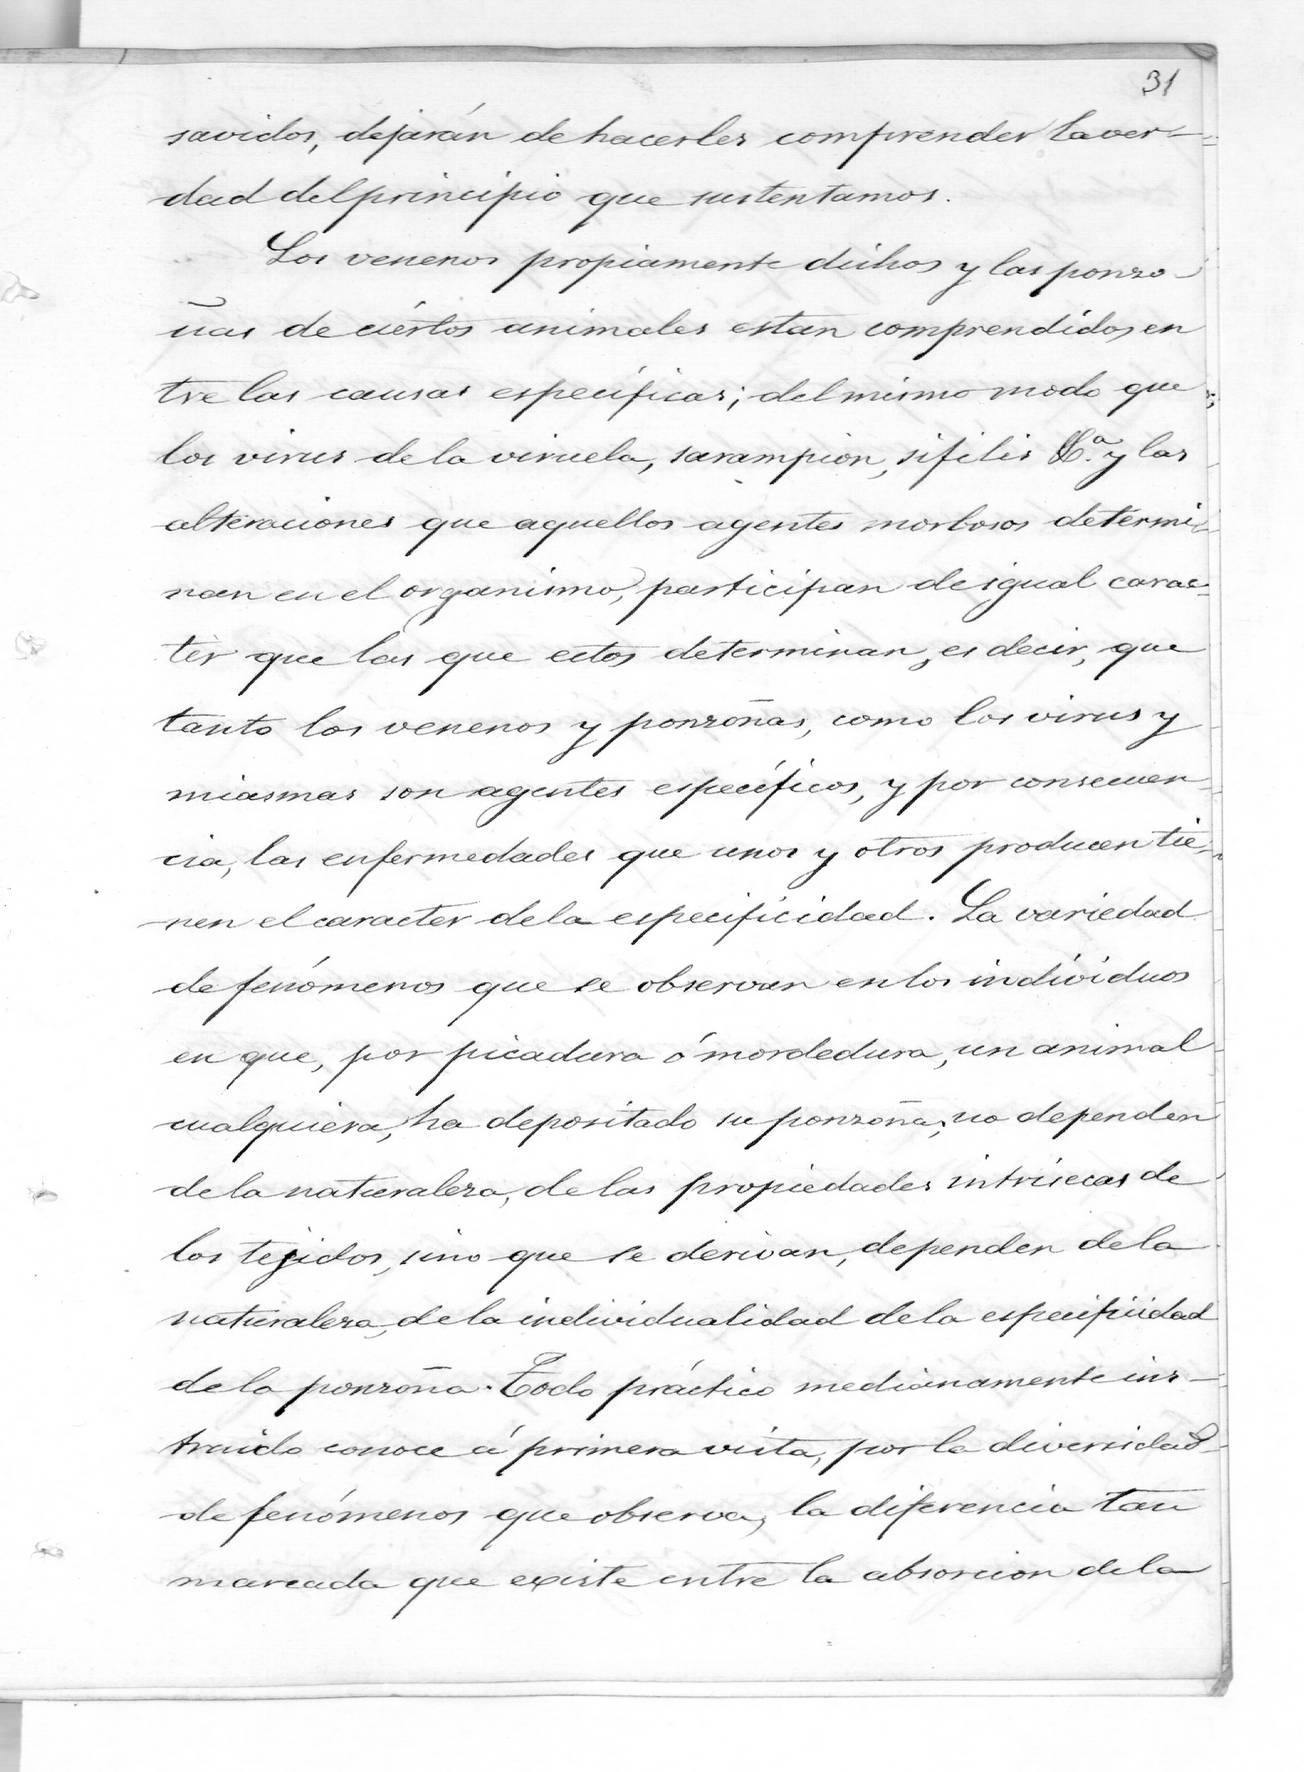 31
savidos, dejarán de hacerles comprender la ver-
dad del principio que sustentamos.
Los venenos propiamente dichos y las ponzo-
ñas de ciértos animales estan comprendidos en
tre las causas específicas; del mismo modo que
los virus de la viruela, sarampion, sifilis &.ª y las
alteraciones que aquellos agentes morbosos determi-
nan en el organismo, participan de igual carac-
ter que las que estos determinan, es decir, que
tanto los venenos y ponzoñas, como los virus y
miasmas son agentes específicos, y por consecuen-
cia, las enfermedades que unos y otros producen tie-
nen el caracter de la especificidad. La variedad
de fenómenos que se observan en los individuos
en que, por picadura ó mordedura, un animal
cualquiera, ha depositado su ponzoña, no dependen
de la naturaleza, de las propiedades intrisecas de
los tejidos, sino que se derivan, dependen de la
naturaleza, de la individualidad de la especificidad
de la ponzoña. Todo práctico medianamente ins-
truido conoce á primera vista, por la diversidad
de fenómenos que observa, la diferencia tan
marcada que existe entre la absorcion de la